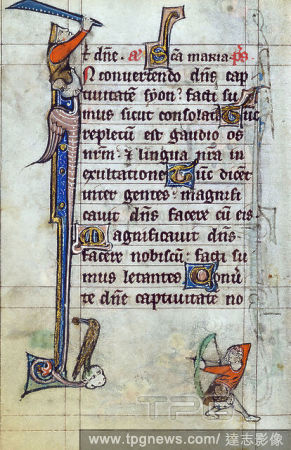 t̃ dñe. æ Sc̃a maria. p̃s
In convertendo dñs cap
tivitatẽ syon: facti su
mus sicut consolati Tũc
repletũ est gaudio os
nrm̃. ⁊ lingua nrã in
exultatione Tũc dicẽt
inter gentes: magnifi
cavit dñs facere cũ eis
Magnificavit dñs
facere nobiscũ: facti su
mus letantes Convẽ
te dñe captivitatẽ no
www.tpgnews.com/ 達志影像